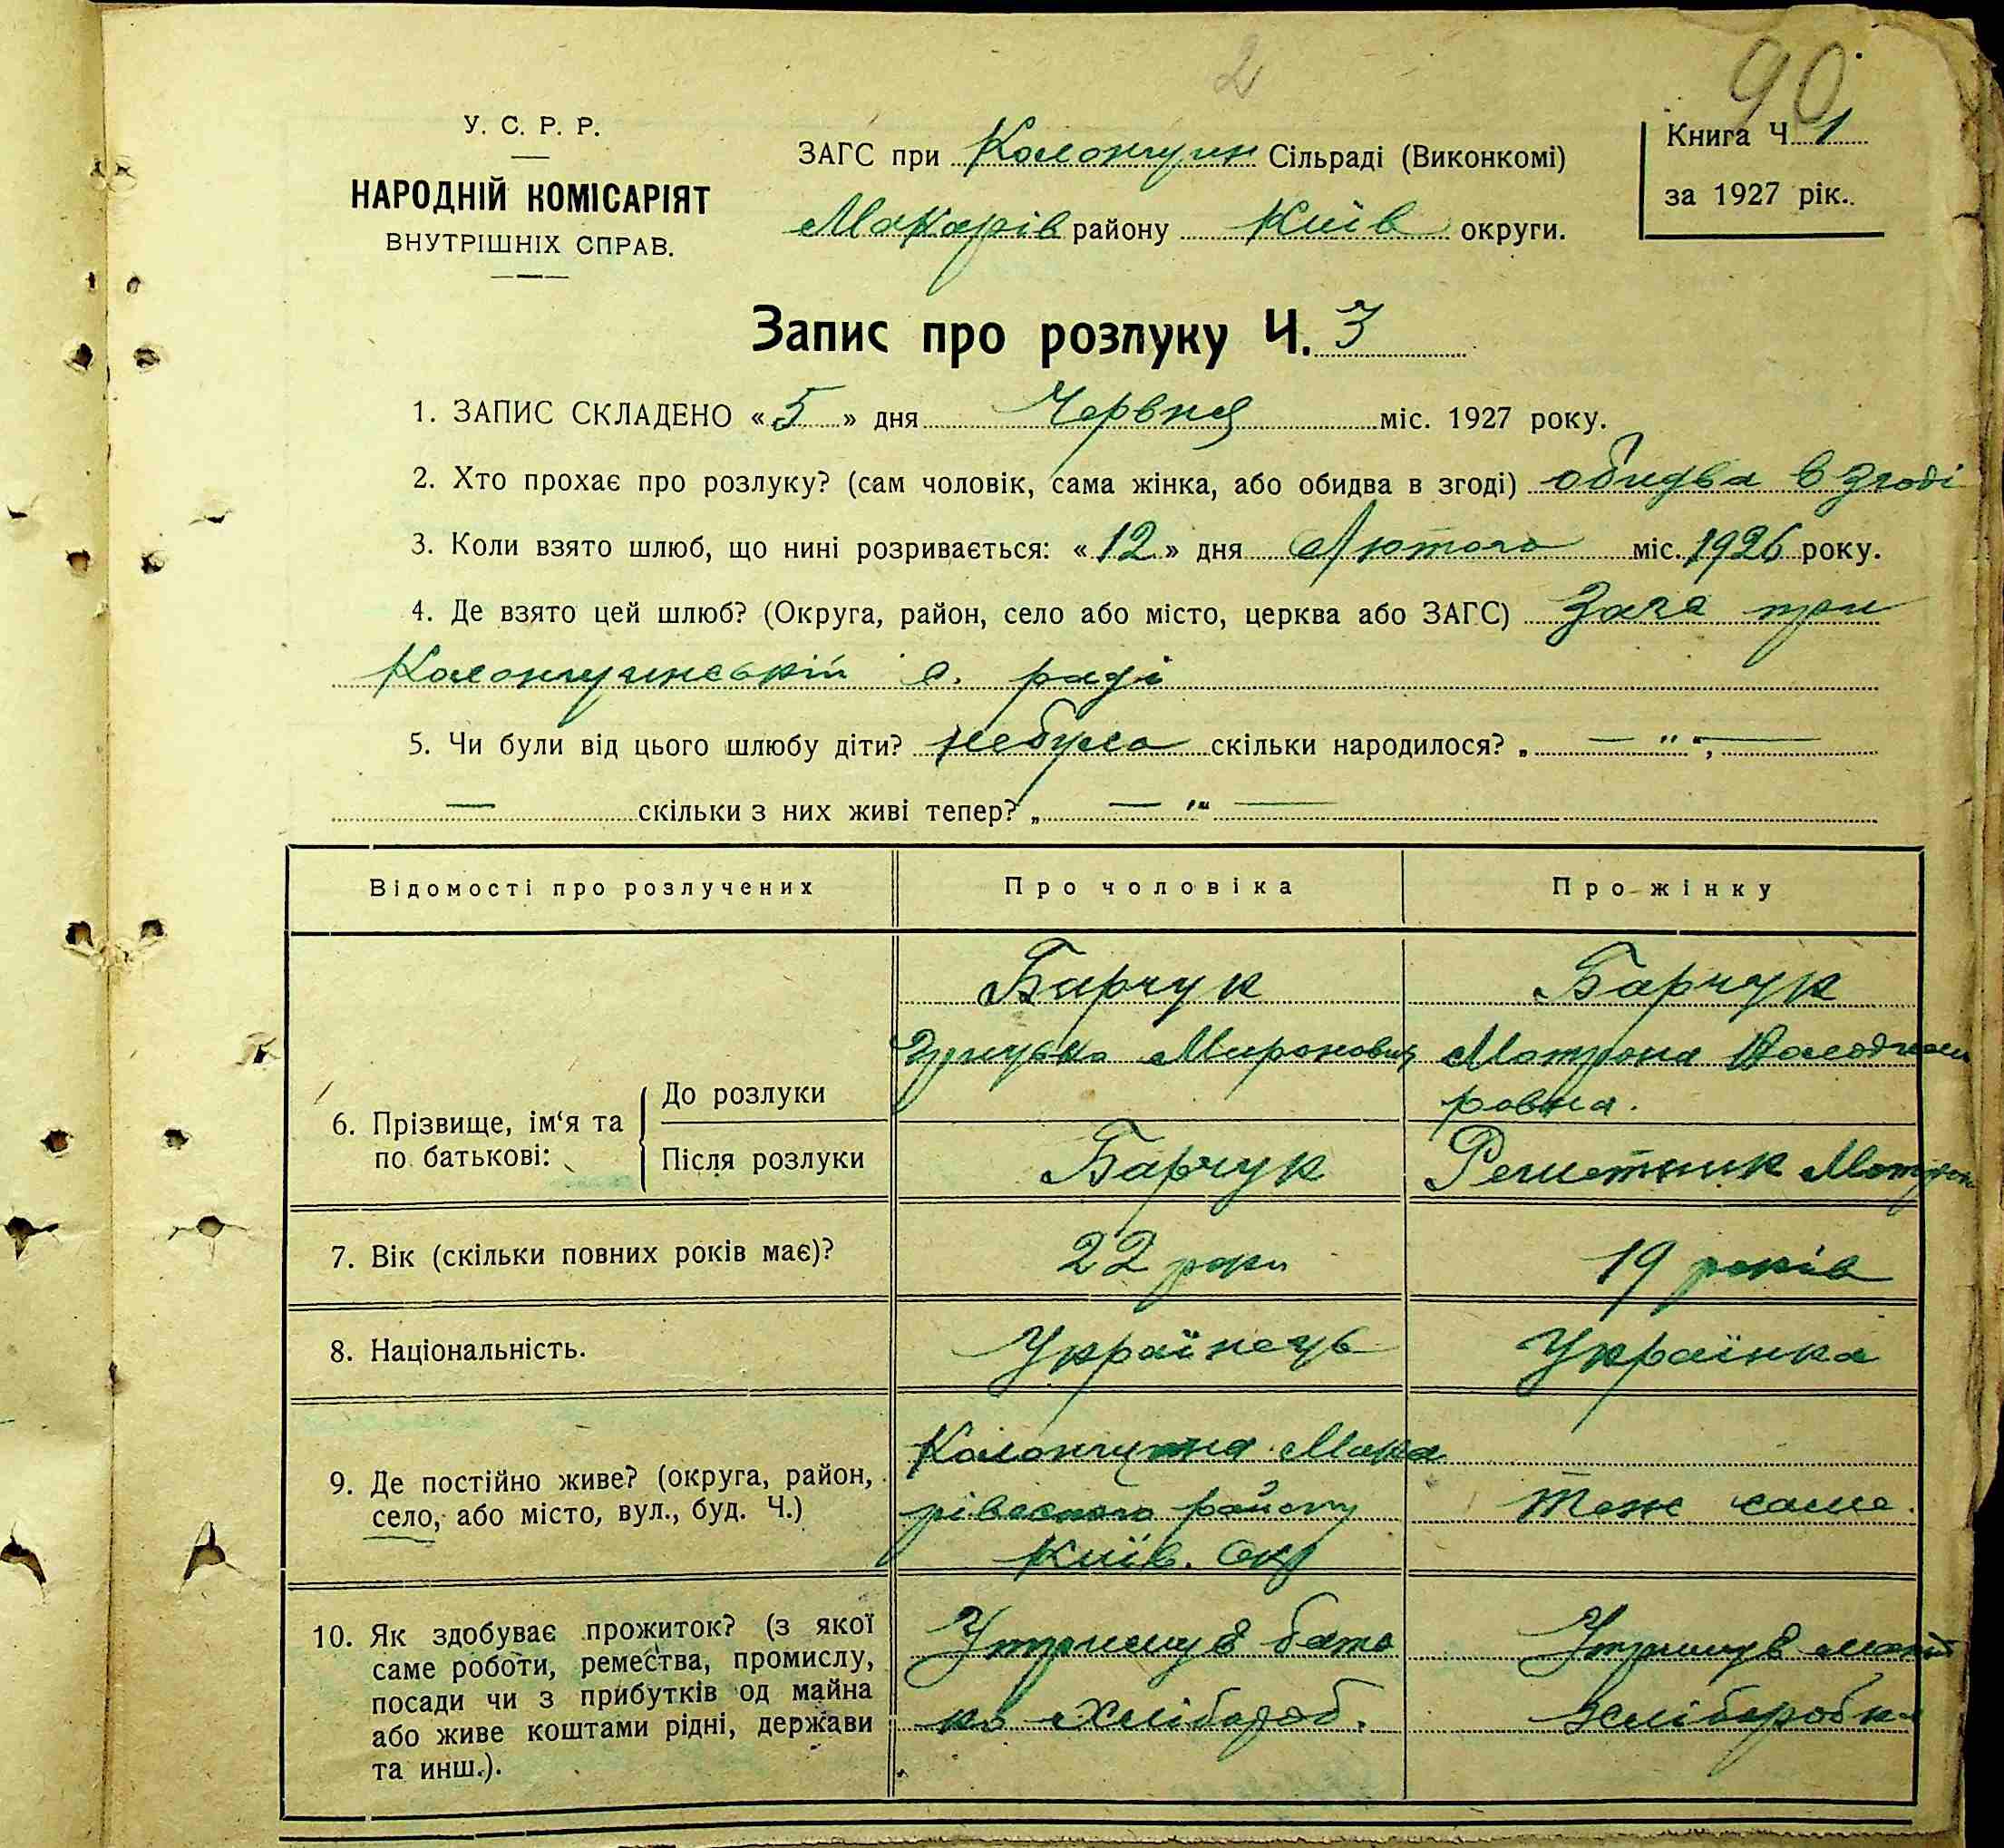 2
90
У. С. Р. Р.
НАРОДНІЙ КОМІСАРІЯТ
ВНУТРІШНІХ СПРАВ.
ЗАГС при Колончуγин Сільраді (Виконкомі)
Макарів району Київ округи.
Книга Ч. 1
за 1927 рік.
Запис про розлуку Ч. 3
1. ЗАПИС СКЛАДЕНО «5» дня Червня міс. 1927 року.
2. Хто прохає про розлуку? (сам чоловік, сама жінка, або обидва в згоді) обидва в згоді
3. Коли взято шлюб, що нині розривається: «12» дня Лютого міс. 1926 року.
4. Де взято цей шлюб? (Округа, район, село або місто, церква або ЗАГС) Загс при
с. раді
5. Чи були від цього шлюбу діти? небуло скільки народилося? „ — " —
— скільки з них живі тепер? „ — " —
Відомості про розлучених Про чоловіка Про жінку
6. Прізвище, ім'я та по батькові:
До розлуки
Барчук
Миронович
Барчук
Мотрона Володими
ровна.
Після розлуки Барчук Решетник Мотрон
7. Вік (скільки повних років має)? 22 роки 19 років
8. Національність. Українець Українка
9. Де постійно живе? (округа, район,
село, або місто, вул., буд. Ч.)
Мака
рівського району
Київ. Окр
Теж саме.
10. Як здобуває прожиток? (з якої
саме роботи, ремества, промислу,
посади чи з прибутків од майна
або живе коштами рідні, держави
та инш.).
Утримує бать
ко Хлібороб.
Утримує
Хліборобка